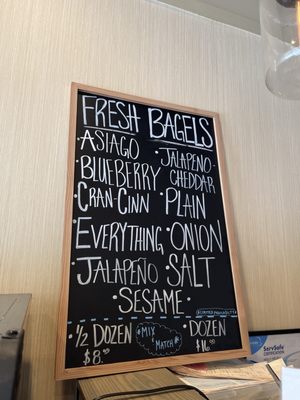 FRESH BAGELS
• ASIAGO
• JALAPEÑO CHEDDAR
• BLUEBERRY
• CRAN-CINN
• PLAIN
• EVERYTHING
• ONION
• JALAPEÑO
• SALT
• SESAME •
• 1/2 DOZEN $8.
• MIX & MATCH •
• DOZEN $16.
ServSafe